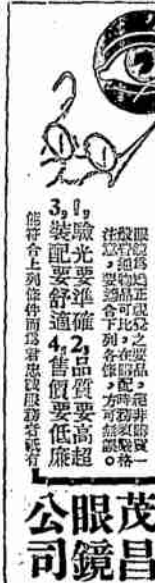 眼鏡爲矯正視覺之要品，絕非購買一
般普通物品可比，在購配時務須嚴格
注意，要適合下列各條，方可無誤。
1,驗光要準確 2,品質要高超
3,裝配要舒適 4,售價要低廉
能符合上列條件而爲君忠誠服務者祇有
茂昌
眼鏡
公司